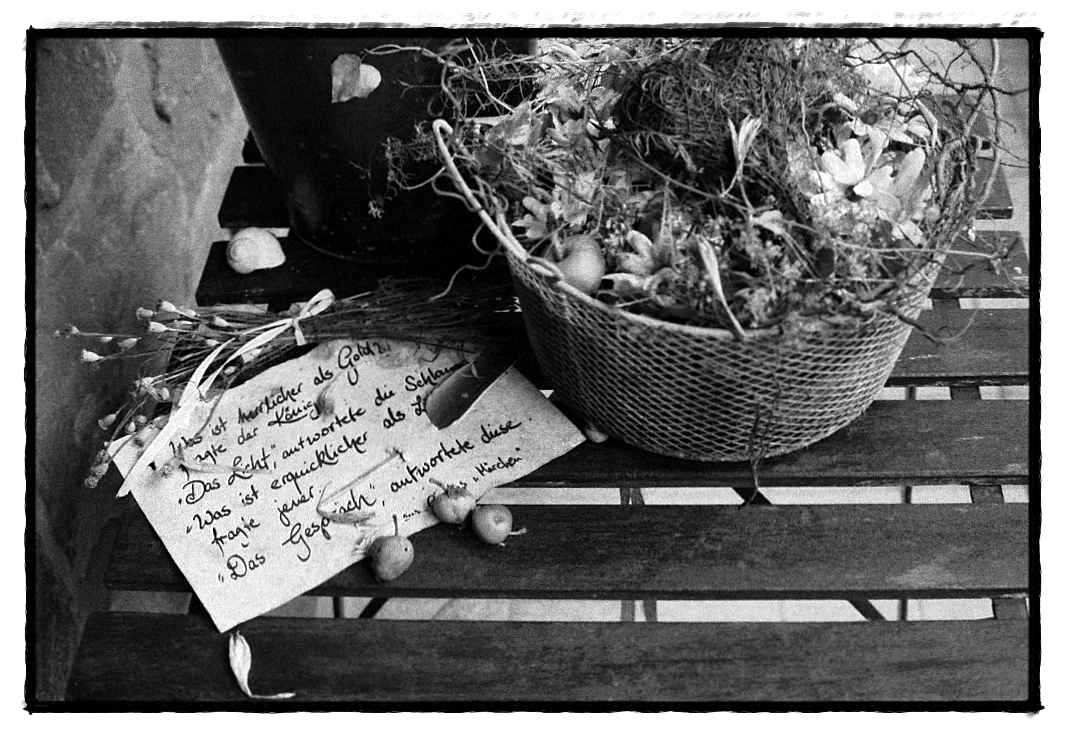 "Was ist herrlicher als Gold?"
fragte der König
"Das Licht", antwortete die
"Was ist erquicklicher als
fragte jener
"Das Gespräch", antwortete diese
"Märchen"